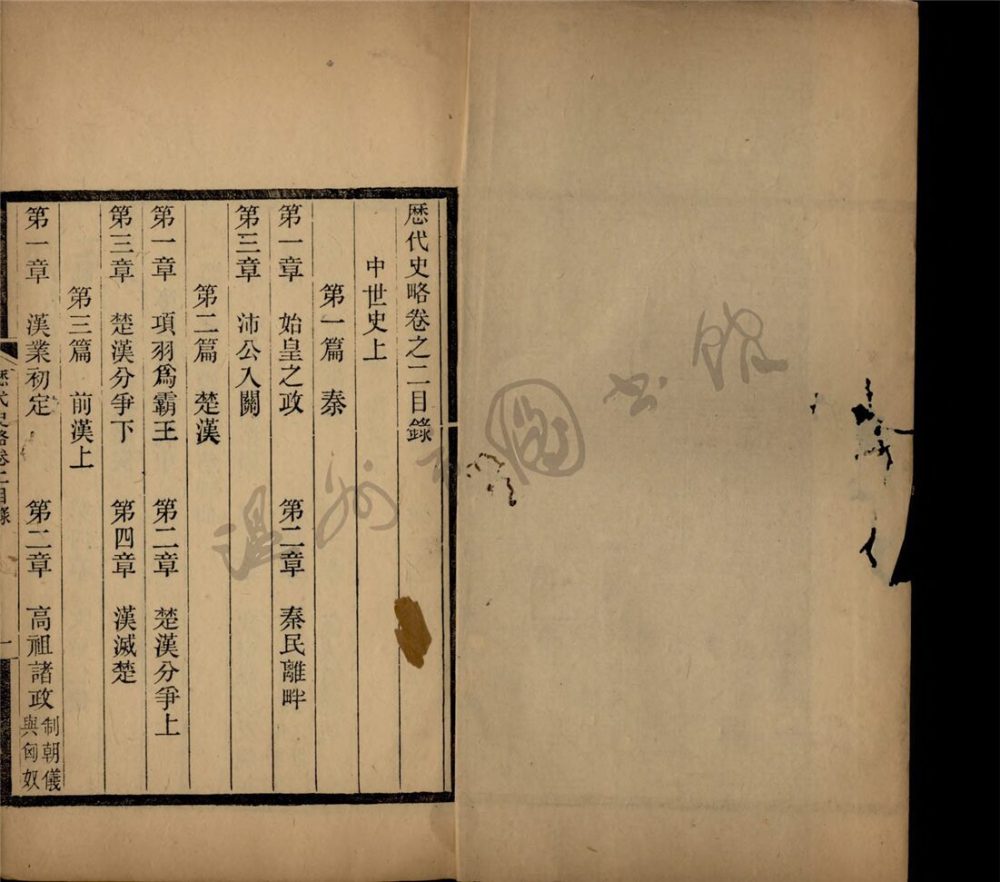 歷代史略卷之二目錄
中世史上
第一篇　秦
第一章　始皇之政　第二章　秦民離畔
第三章　沛公入關
第二篇　楚漢
第一章　項羽爲霸王　第二章　楚漢分爭上
第三章　楚漢分爭下　第四章　漢滅楚
第三篇　前漢上
第一章　漢業初定　第二章　高祖諸政　制朝儀　與匈奴
歷代史略卷二目錄　一
溫州市圖書館